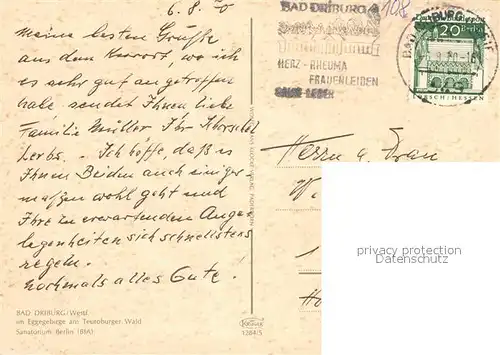 6.8.70
Meine besten Grüße
aus dem Kurort, wo ich
es sehr gut angetroffen
habe sendet Ihnen liebe
Familie Müller Ihr
Ich hoffe, daß es
Ihnen Beiden auch einiger-
maßen wohl geht und
Ihre zu erwartenden Ange-
legenheiten sich schnellstens
regeln.
nochmals alles Gute.
BAD DRIBURG/Westf
im Eggegebirge am Teutoburger Wald
Sanatorium Berlin (BfA)
BAD DRIBURG
HERZ - RHEUMA
FRAUENLEIDEN
GALLE - LEBER
108
DEUTSCHE BUNDESPOST
20
LORSCH/HESSEN
Herrn u. Frau
privacy protection
1264/5